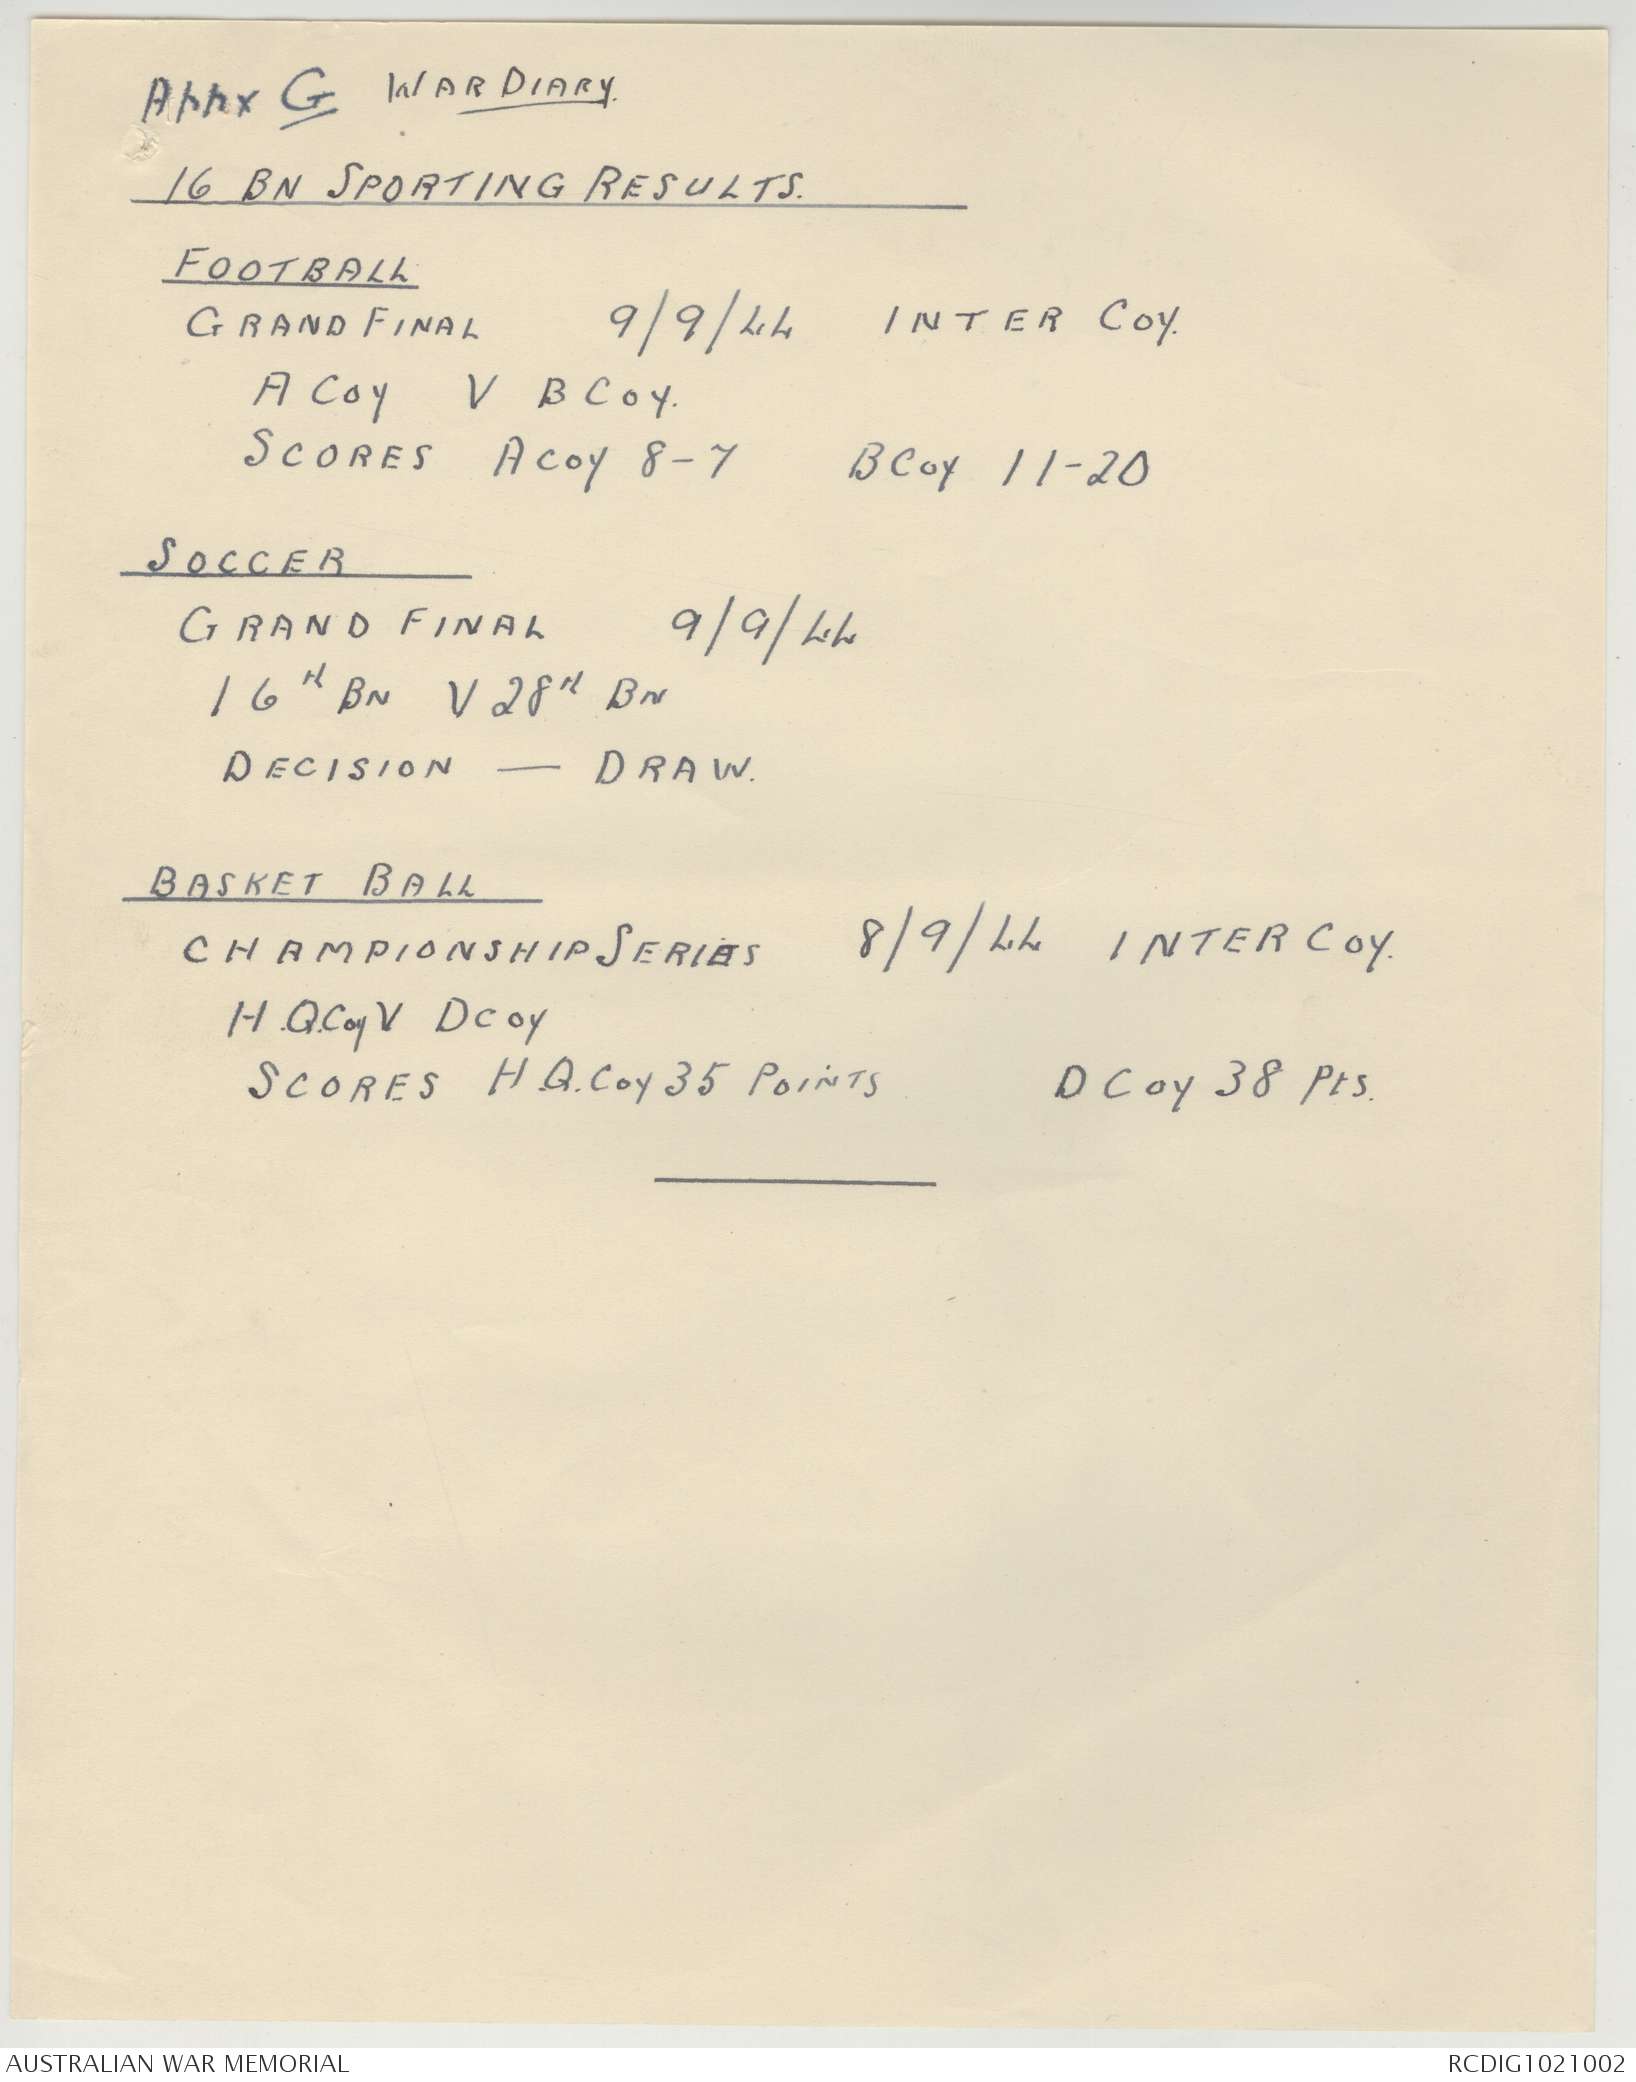 Appx G WAR DIARY.
16 BN SPORTING RESULTS.
FOOTBALL
GRAND FINAL 9/9/44 INTER COY.
A COY V B COY.
SCORES A COY 8-7 B COY 11-20
SOCCER
GRAND FINAL 9/9/44
16TH BN V 28TH BN
DECISION — DRAW.
BASKET BALL
CHAMPIONSHIP SERIES 8/9/44 INTER COY.
H.Q. Coy V D COY
SCORES H.Q. COY 35 POINTS D COY 38 Pts.
AUSTRALIAN WAR MEMORIAL RCDIG1021002